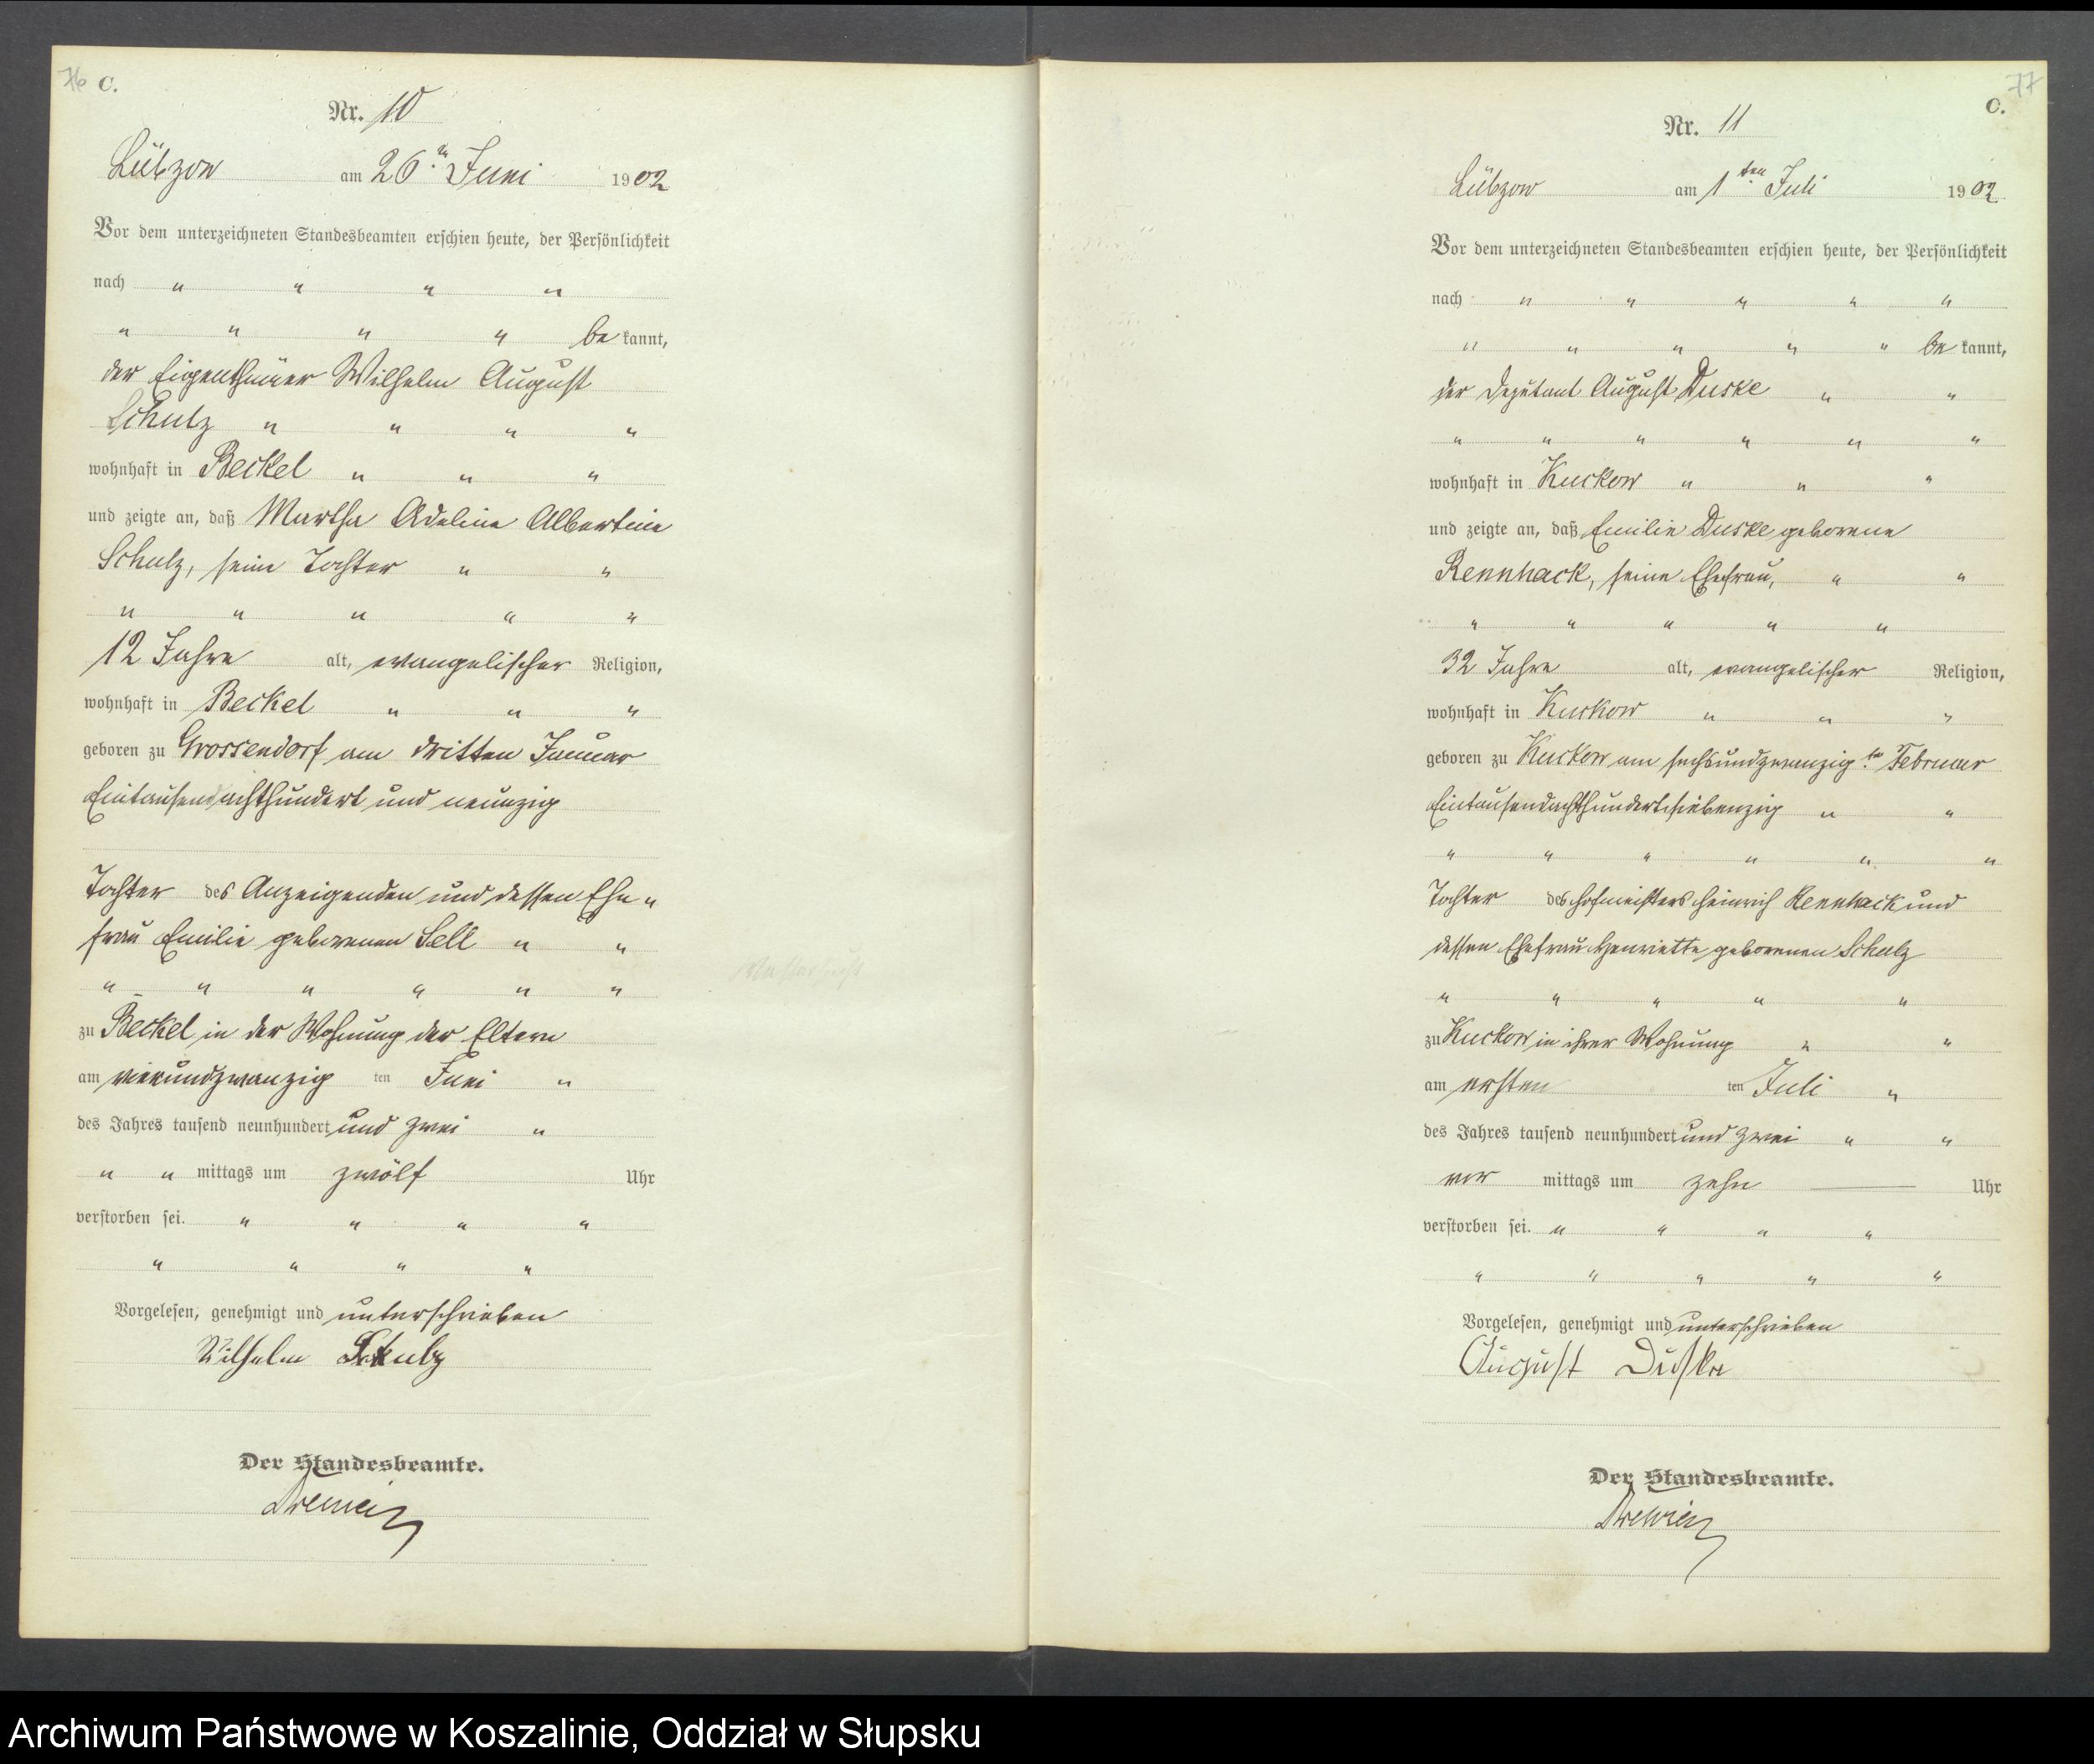 76 C.
Nr. 10
Lübzow am 26ten Juni 1902
Vor dem unterzeichneten Standesbeamten erschien heute, der Persönlichkeit
nach " " " "
" " " " bekannt,
der Eigenthümer Wilhelm August
Schulz " " " "
wohnhaft in Beckel " " "
und zeigte an, daß Martha Adeline Albertine
Schulz, seine Tochter " "
" " " " "
12 Jahre alt, evangelischer Religion,
wohnhaft in Beckel " " "
geboren zu Grossendorf am dritten Januar
Eintausendachthundert und neunzig
Tochter des Anzeigenden und dessen Ehe "
frau Emilie geborenen Sell " "
" " " " " "
zu Beckel in der Wohnung der Eltern
am vierundzwanzig ten Juni "
des Jahres tausend neunhundert und zwei "
" " mittags um zwölf Uhr
verstorben sei. " " " "
" " " "
Vorgelesen, genehmigt und unterschrieben
Wilhelm Schulz
Der Standesbeamte.
77
C.
Nr. 11
Lübzow am 1ten Juli 1902
Vor dem unterzeichneten Standesbeamten erschien heute, der Persönlichkeit
nach " " " " "
" " " " " bekannt,
der Deputant August Duske " "
" " " " " "
wohnhaft in Kuckow " " "
und zeigte an, daß Emilie Duske geborene
Rennhack, seine Ehefrau, " "
" " " " "
32 Jahre alt, evangelischer Religion,
wohnhaft in Kuckow " " "
geboren zu Kuckow am sechsundzwanzigten Februar
Eintausendachthundertsiebenzig " "
" " " " " "
Tochter des Hofmeisters Heinrich Rennhack und
dessen Ehefrau Henriette geborenen Schulz
" " " " "
zu Kuckow in ihrer Wohnung " "
am ersten ten Juli "
des Jahres tausend neunhundert und zwei " "
vor mittags um zehn Uhr
verstorben sei. " " " "
" " " " "
Vorgelesen, genehmigt und unterschrieben
August Duske
Der Standesbeamte.
Archiwum Państwowe w Koszalinie, Oddział w Słupsku